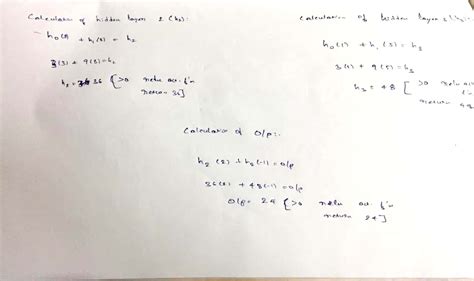 Calculation of hidden layer 2 (h2):
h0(3) + h1(3) = h2
3(3) + 9(3) = h2
h2 = 36 [>0 relu act. f'n
return 36]
Calculation of hidden layer 3 (h3):
h1 (3) = h3
h3 = 48 [>0 relu
return
Calculation of O/p:-
h2 (2) + h3 (-1) = O/p
36(2) + 48(-1) = O/p
O/p = 24 [>0 relu act. f'n
return 24]